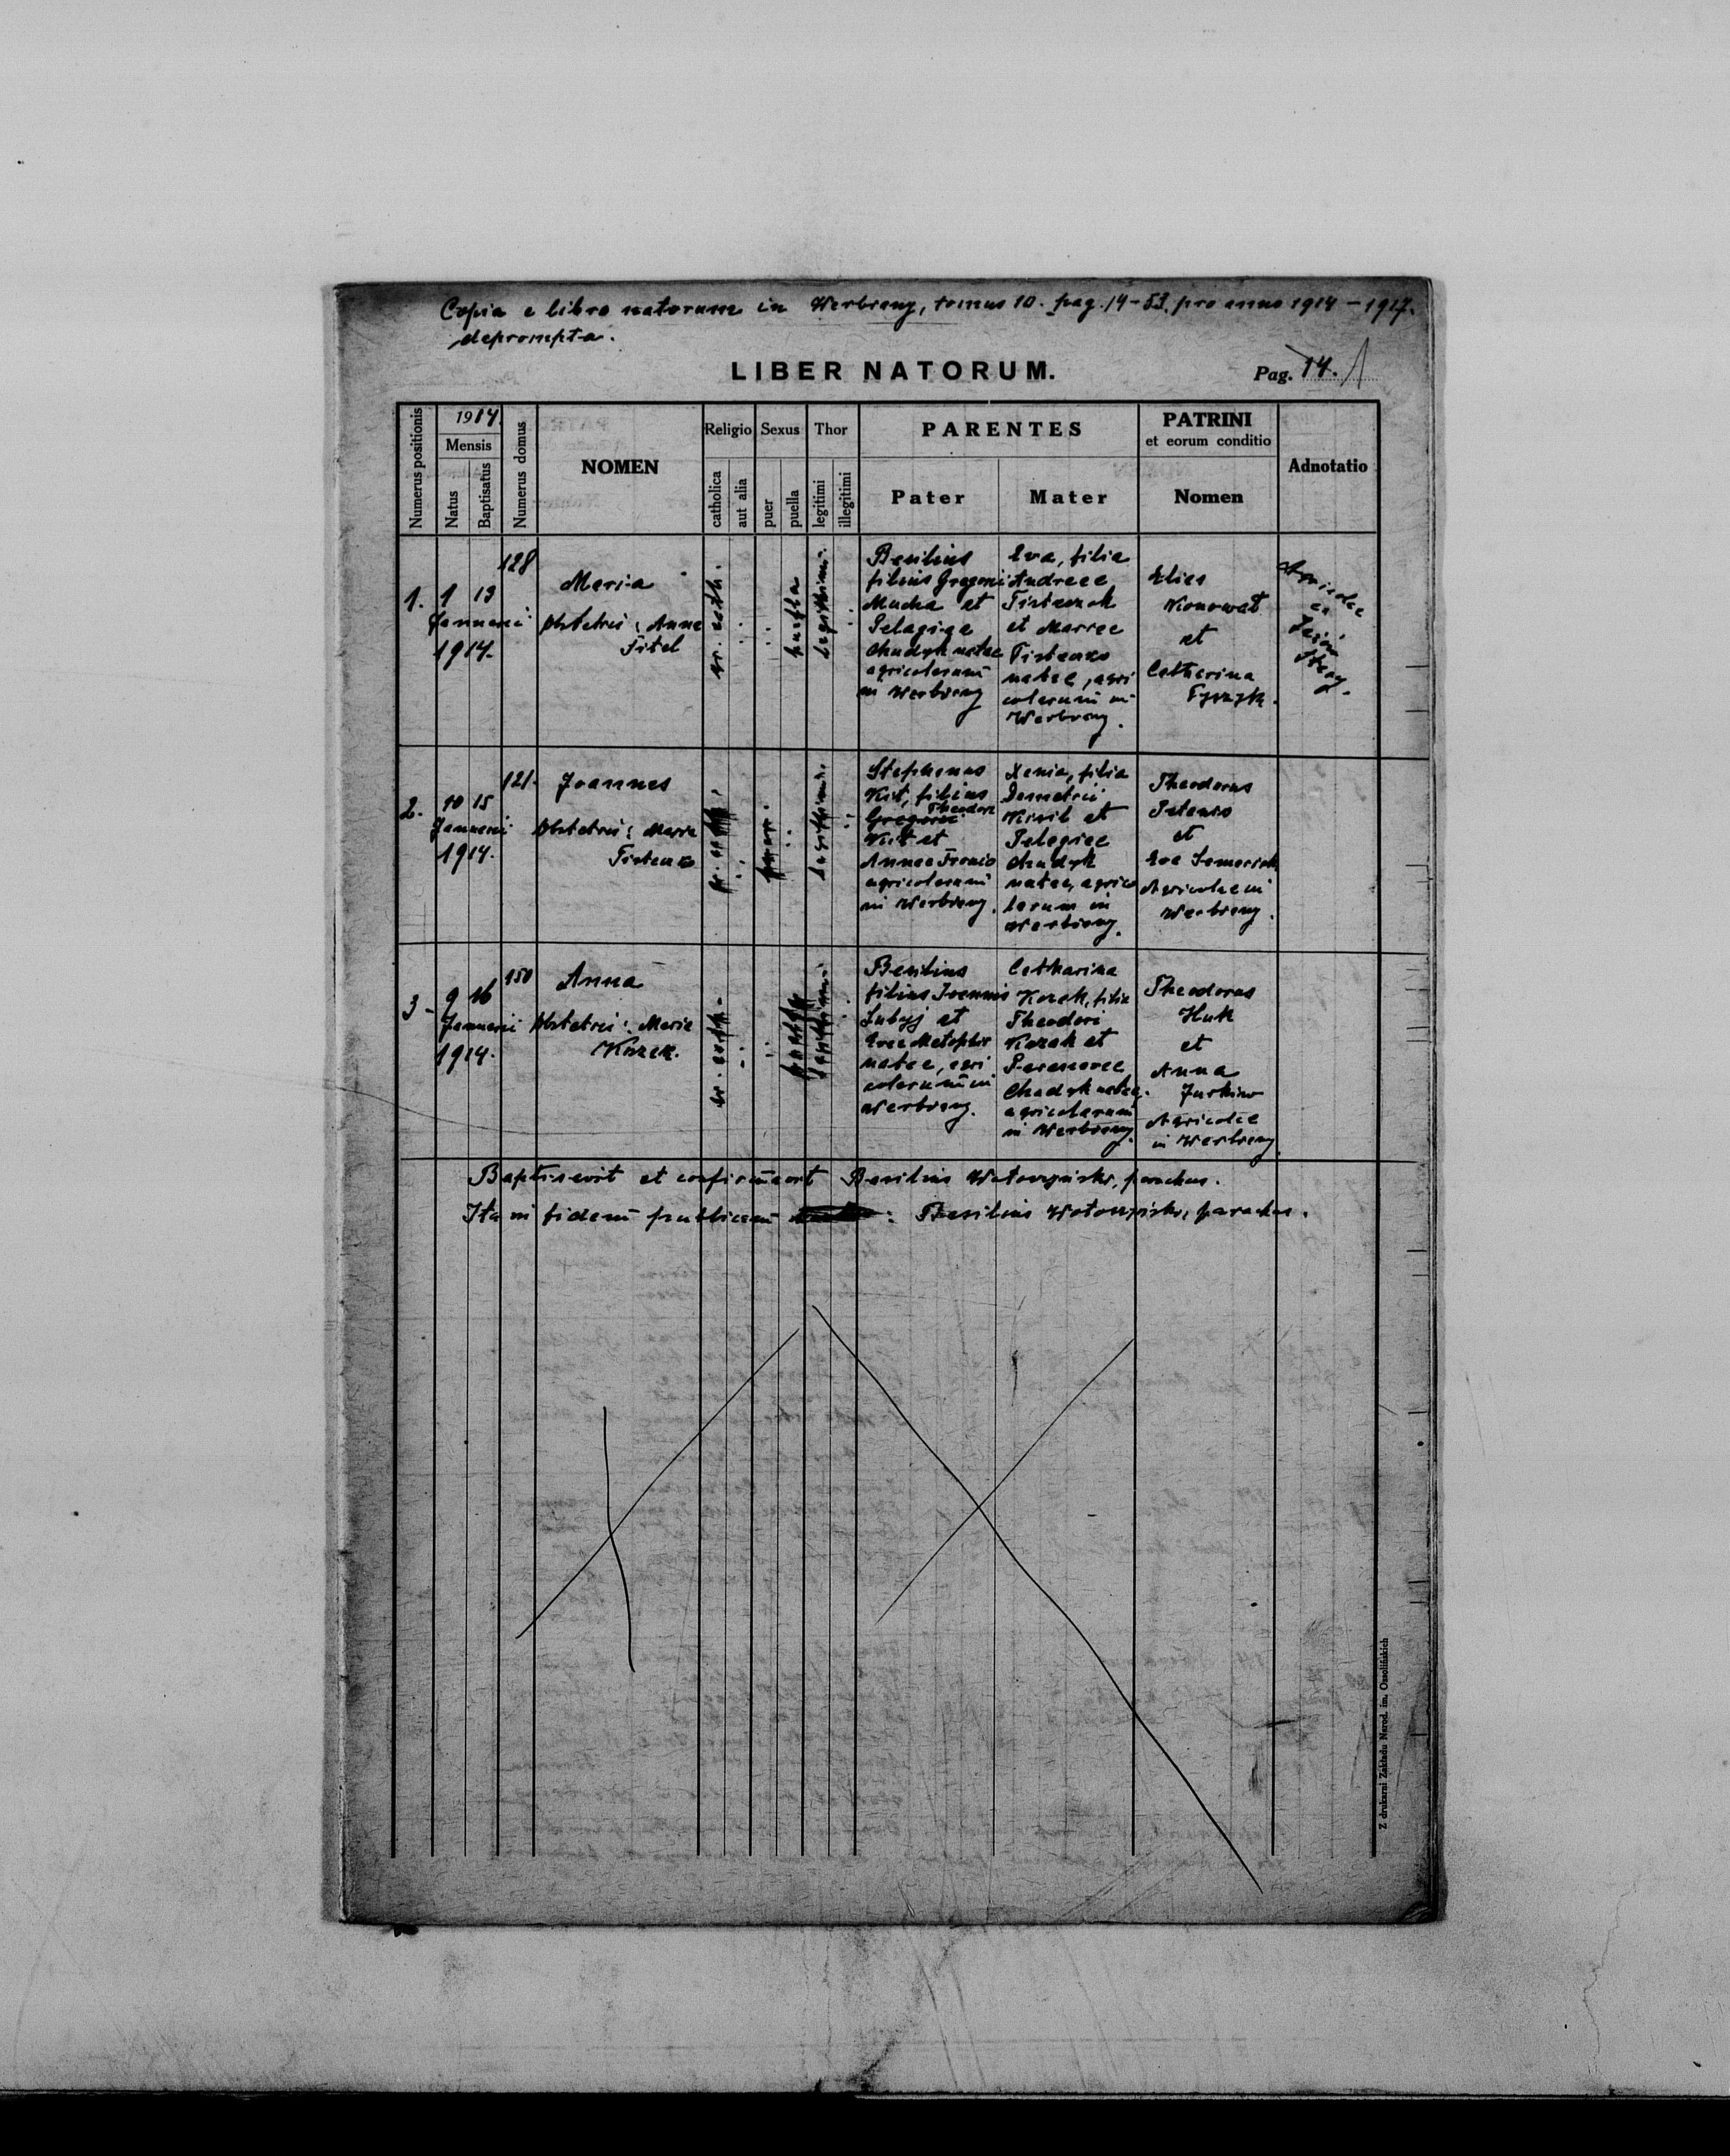 Copia e libro natorum in Werbiany, tomus 10. pag. 14-53. pro anno 1914-1917.
deprompta.
LIBER NATORUM.
Pag. 14. 1
Numerus positionis
1914.
Mensis
Natus
Baptisatus
Numerus domus
NOMEN
Religio
catholica
aut alia
Sexus
puer
puella
Thor
legitimi
illegitimi
PARENTES
Pater
Mater
PATRINI
et eorum conditio
Nomen
Adnotatio
1.
1 13
Januarii
1914.
128
Maria
Obstetrix: Anna
Fitel
gr. cath.
puella
legitimi
Basilius
filius Gregorii
Mucha et
Pelagiae
Chudyk natae
agricolarum
in Werbiany
Eva, filia
Andreae
et Mariae
natae, agri
colarum in
Werbiany.
Elias
Konowal
et
Catharina
2.
10 15
Januarii
1914.
121.
Joannes
Obstetrix: Maria
gr. cath.
puer
legitimi
Stephanus
Kit, filius
Gregorii Theodori
Kit et
Annae
agricolarum
in Werbiany.
Xenia, filia
Demetrii
et
Pelagiae
Chudyk
natae, agrico
larum in
Werbiany.
Theodorus
et
Eva
Agricolae in
Werbiany.
3-
9 16
Januarii
1914.
150
Anna
Obstetrix: Maria
Kozak.
gr. cath.
puella
legitimi
Basilius
filius Joannis
et
Evae
natae, agri
colarum in
Werbiany.
Catharina
Kozak, filia
Theodori
Kozak et
Chudyk natae.
agricolarum
in Werbiany.
Theodorus
Huk
et
Anna
Jurkiw
Agricolae
in Werbiany
Baptisavit et confirmavit Basilius parochus.
Ita in fidem publicam : Basilius parochus.
Z drukarni Zakładu Narod. im. Ossolińskich